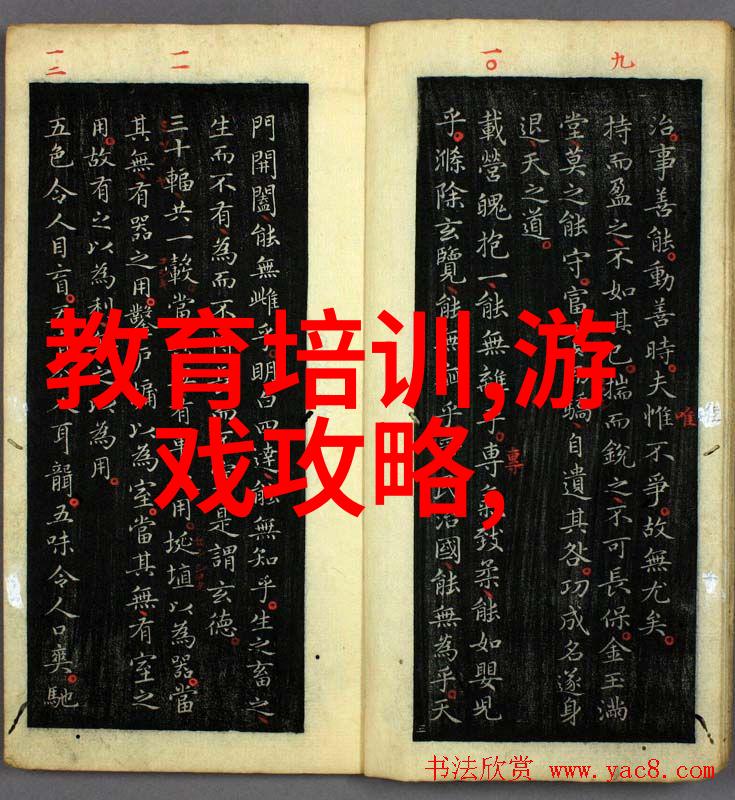 九
一〇
治事善能動善時夫惟不爭故無尤矣
唯
持而盈之不如其已揣而銳之不可長保金玉滿
堂莫之能守富驕自遺其咎功成名遂身
退天之道
載營魄抱一能無離乎專氣致柔能如嬰兒
專
乎滌除玄覽能無疵乎治國能無為乎天
一一
一二
門開闔能無雌乎明白四達能無知乎生之畜之
生而不有為而不是謂玄德
三十輻共一轂當有車用埏埴以為器當
其無有器之用鑿戶牖以為室當其無有室之
用故有之以為利之以為用
五色令人目盲五人耳聾五味令人口爽馳
教育培训,游
戏攻略,
书法欣赏 www.yac8.com